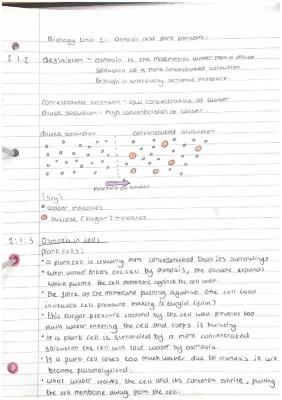 Biology Unit 2 - Osmosis and
2.1.2 definition - osmosis is the movement of water from a dilute
solution to a more concentrated solution
through a selectively permeable membrane.
concentrated solution - low concentration of water
dilute solution - high concentration of water
dilute solution concentrated solution
movement of water
Key:
water molecules
sucrose (sugar) molecules
2.1.3 Osmosis in cells
plant cells:
• a plant cell is usually more concentrated than its surroundings
• when water enters the cell by osmosis, the vacuole expands
which pushes the cell membrane against the cell wall.
• the force of the membrane pushing against the cell wall
increases cell pressure making it turgid (firm)
• this turgor pressure created by the cell wall prevents too
much water entering the cell and stops it bursting.
• if a plant cell is surrounded by a more concentrated
solution the cell will lose water by osmosis.
• if a plant cell loses too much water due to osmosis it will
become plasmolysed.
• when water leaves the cell and its contents shrink, pulling
the cell membrane away from the cell.